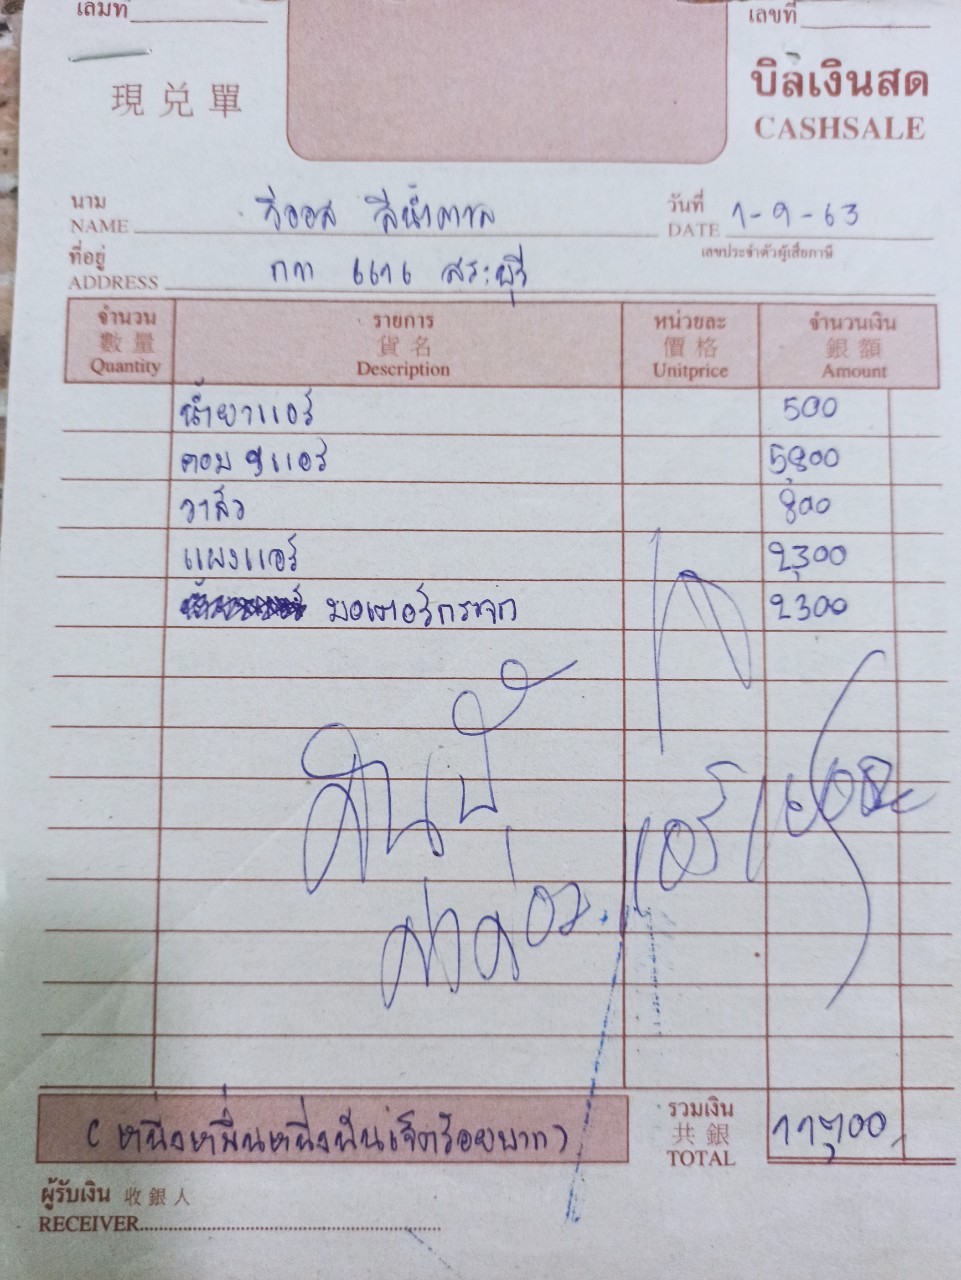 เล่มที่ เลขที่
現兑單 บิลเงินสด
CASHSALE
นาม วีออส สีน้ำตาล วันที่ 1-9-63
NAME DATE
เลขประจำตัวผู้เสียภาษี
ที่อยู่ กก 6616 สระบุรี
ADDRESS
จำนวน รายการ หน่วยละ จำนวนเงิน
數量 貨名 價格 銀額
Quantity Description Unitprice Amount
น้ำยาแอร์ 500
คอม แอร์ 5,800
วาล์ว 800
แผงแอร์ 2,300
มอเตอร์กระจก 2300
แอร์
(หนึ่งหมื่นหนึ่งพันเจ็ดร้อยบาท) รวมเงิน 11,700
共銀
TOTAL
ผู้รับเงิน 收銀人
RECEIVER